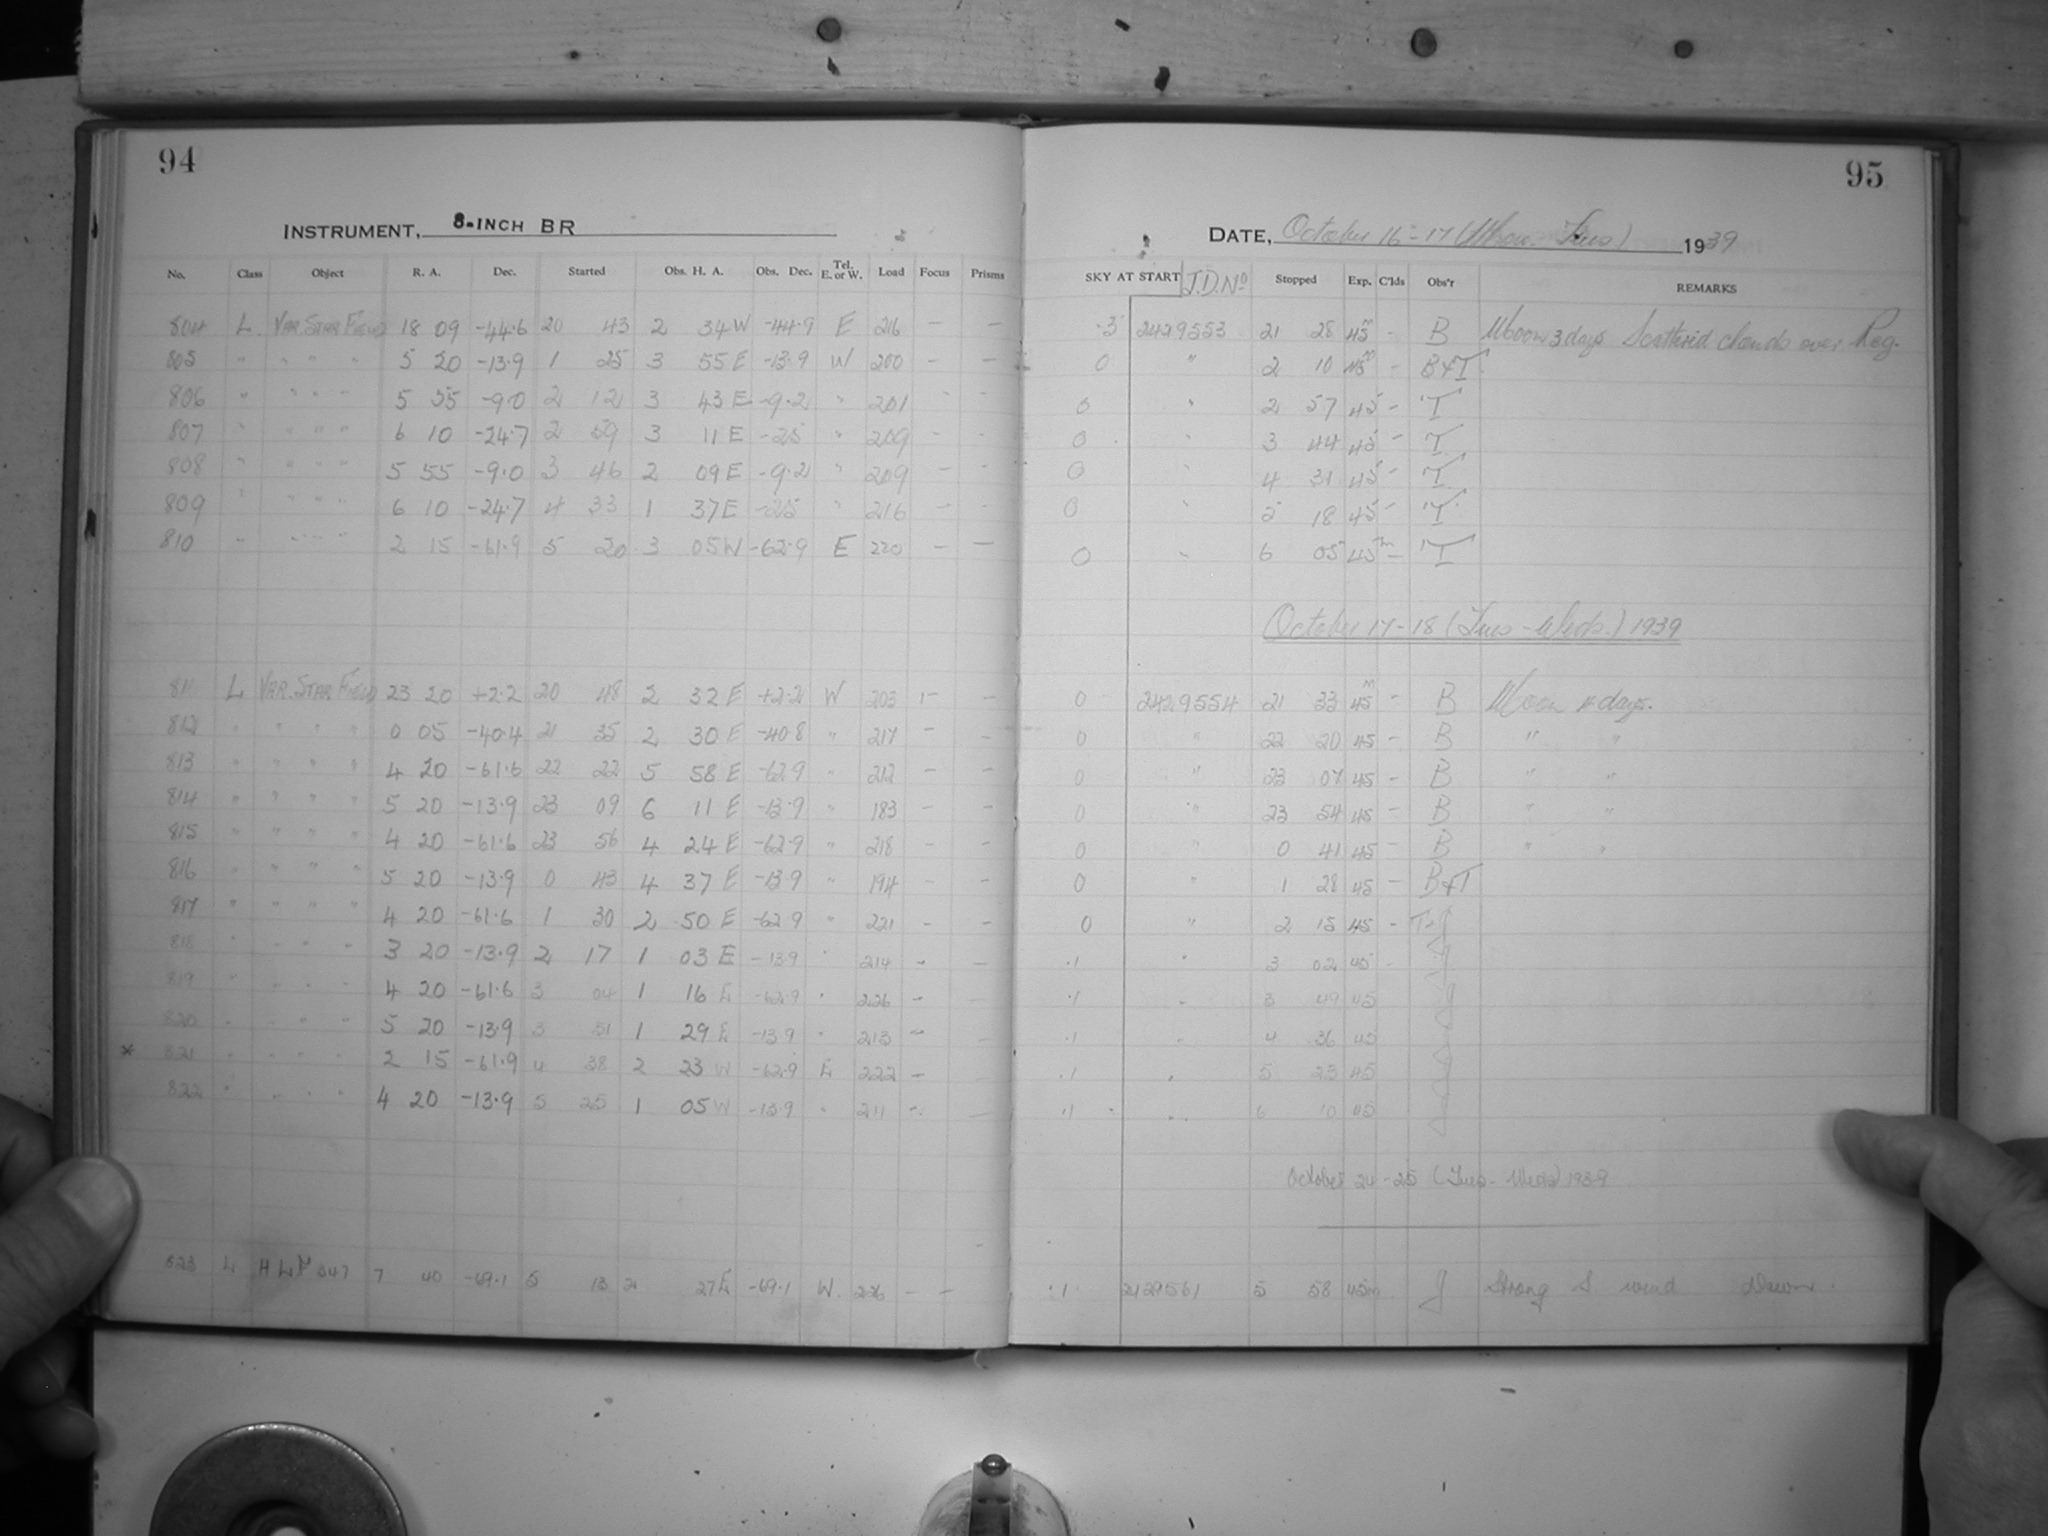 94
INSTRUMENT, 8-INCH BR
No. Class Object R. A. Dec. Started Obs. H. A. Obs. Dec. Tel. E. or W. Load Focus Prisms
804 L. VAR. STAR FIELD 18 09 -44.6 20 43 2 34 W -44.9 E 216 - -
805 " " " " 5 20 -13.9 1 25 3 55 E -13.9 W 200 - -
806 " " " " 5 55 -9.0 2 12 3 43 E -9.2 " 201 - -
807 " " " " 6 10 -24.7 2 59 3 11 E -25 " 209 - -
808 " " " " 5 55 -9.0 3 46 2 09 E -9.2 " 209 - -
809 " " " " 6 10 -24.7 4 33 1 37 E -25 " 216 - -
810 " " " " 2 15 -61.9 5 20 3 05 W -62.9 E 220 - -
811 L VAR. STAR FIELD 23 20 +2.2 20 48 2 32 E +2.2 W 203 - -
812 " " " " 0 05 -40.4 21 35 2 30 E -40.8 " 217 - -
813 " " " " 4 20 -61.6 22 22 5 58 E -62.9 " 212 - -
814 " " " " 5 20 -13.9 23 09 6 11 E -13.9 " 183 - -
815 " " " " 4 20 -61.6 23 56 4 24 E -62.9 " 218 - -
816 " " " " 5 20 -13.9 0 43 4 37 E -13.9 " 194 - -
817 " " " " 4 20 -61.6 1 30 2 50 E -62.9 " 221 - -
818 " " " " 3 20 -13.9 2 17 1 03 E -13.9 " 214 - -
819 " " " " 4 20 -61.6 3 04 1 16 E -62.9 " 226 - -
820 " " " " 5 20 -13.9 3 51 1 29 E -13.9 " 213 - -
* 821 " " " " 2 15 -61.9 4 38 2 23 W -62.9 E 222 - -
822 " " " " 4 20 -13.9 5 25 1 05 W -13.9 " 211 - -
823 L 7 40 -69.1 5 13 2 27 E -69.1 W. 226 - -
95
DATE, October 16-17 (Mon. - Tues) 1939
SKY AT START J.D. No Stopped Exp. C'lds Obs'r REMARKS
.5 2429553 21 28 45m - B Moon 3 days Scattered clouds over Reg.
0 " 2 10 45m - B & T
0 " 2 57 45 - T
0 " 3 44 45 - T
0 " 4 31 45 - T
0 " 5 18 45 - T
0 " 6 05 45m - T
October 17-18 (Tues - Weds.) 1939
0 2429554 21 33 45m - B Moon 4 days.
0 " 22 20 45 - B " "
0 " 23 07 45 - B " "
0 " 23 54 45 - B " "
0 " 0 41 45 - B " "
0 " 1 28 45 - B & T
0 " 2 15 45 - T - J
.1 " 3 02 45 - J
.1 " 3 49 45 J
.1 " 4 36 45 J
.1 " 5 23 45 J
.1 " 6 10 45 J
October 24-25 (Tues - Weds) 1939
.1 2429561 5 58 45m J Strong S wind Dawn.